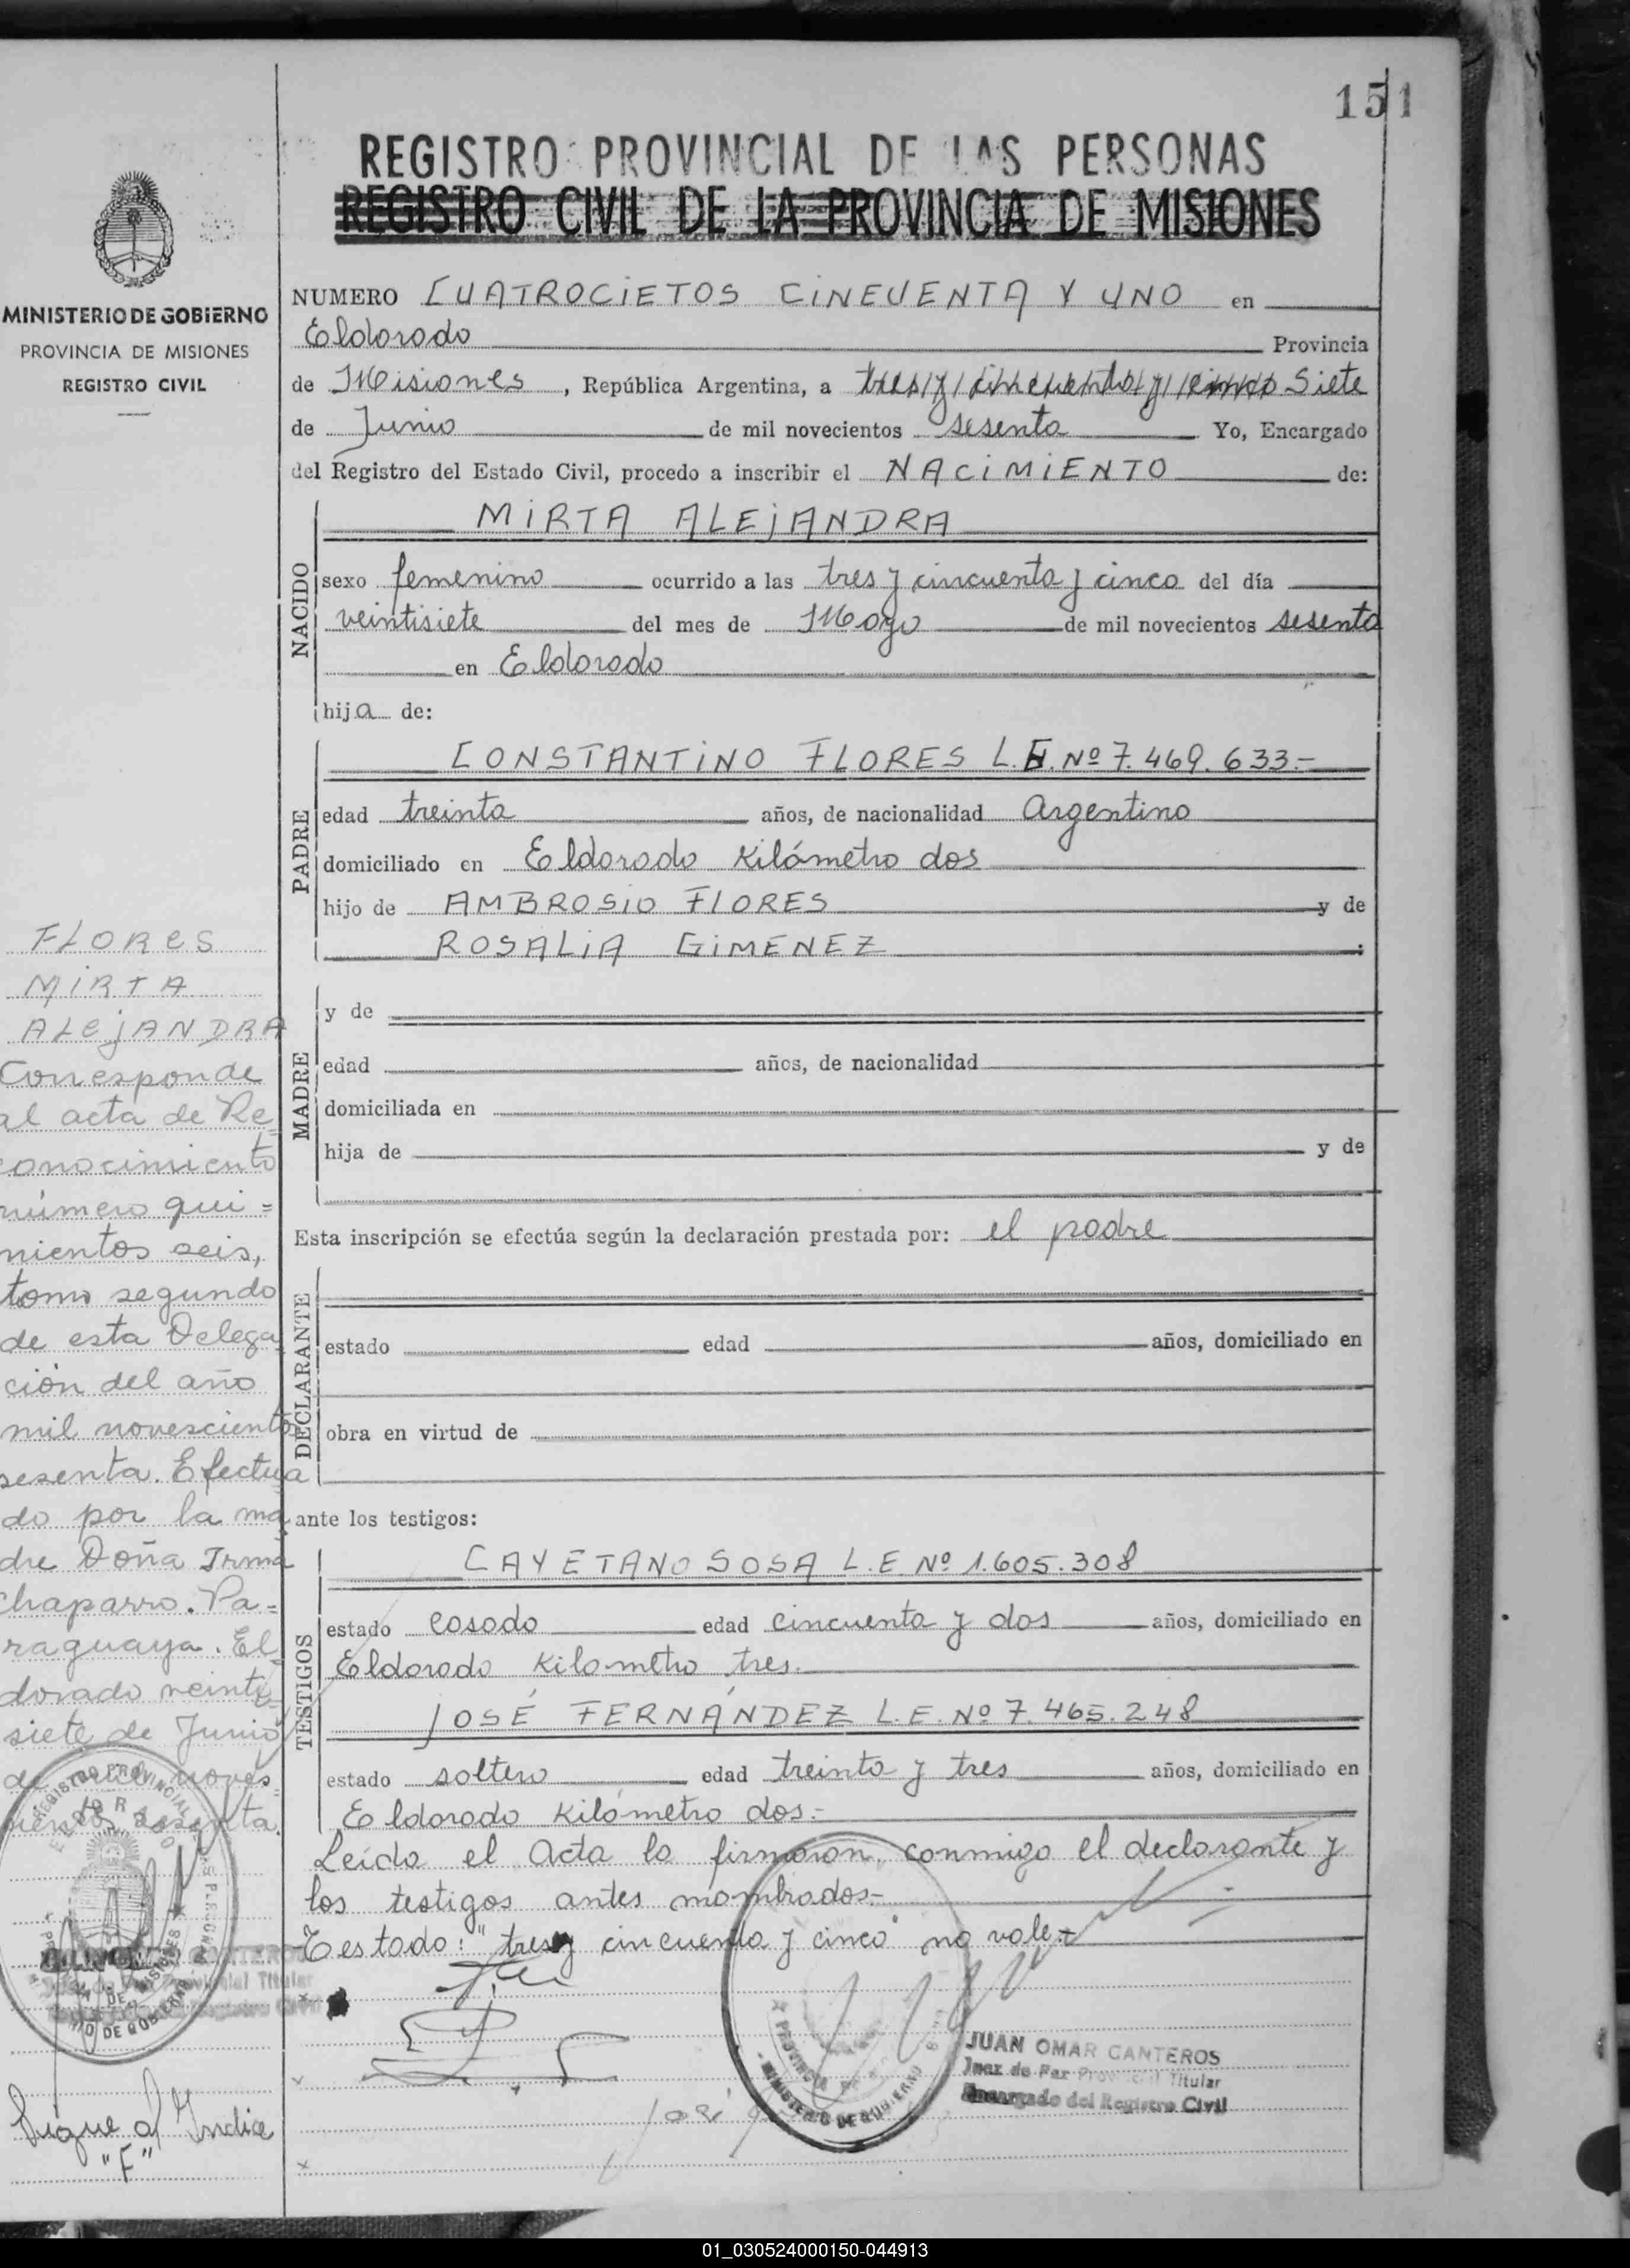 151
REGISTRO PROVINCIAL DE LAS PERSONAS
REGISTRO CIVIL DE LA PROVINCIA DE MISIONES
MINISTERIO DE GOBIERNO
PROVINCIA DE MISIONES
REGISTRO CIVIL
NUMERO CUATROCIETOS CINCUENTA Y UNO en
Eldorado Provincia
de Misiones, República Argentina, a tres y cincuenta y cinco Siete
de Junio de mil novecientos sesenta Yo, Encargado
del Registro del Estado Civil, procedo a inscribir el NACIMIENTO de:
NACIDO
MIRTA ALEJANDRA
sexo femenino ocurrido a las tres y cincuenta y cinco del día
veintisiete del mes de Mayo de mil novecientos sesenta
en Eldorado
hija de:
PADRE
CONSTANTINO FLORES L.E. Nº 7.469.633.-
edad treinta años, de nacionalidad Argentino
domiciliado en Eldorado Kilómetro dos
hijo de AMBROSIO FLORES y de
ROSALIA GIMENEZ ;
MADRE
y de
edad años, de nacionalidad
domiciliada en
hija de y de
Esta inscripción se efectúa según la declaración prestada por: el padre
DECLARANTE
estado edad años, domiciliado en
obra en virtud de
ante los testigos:
TESTIGOS
CAYETANO SOSA L.E. Nº 1.605.308
estado casado edad cincuenta y dos años, domiciliado en
Eldorado Kilometro tres.
JOSÉ FERNÁNDEZ L.E. Nº 7.465.248
estado soltero edad treinta y tres años, domiciliado en
Eldorado Kilómetro dos.-
Leída el Acta la firmaron, conmigo el declarante y
los testigos antes mombrados.-
Testado: "tres y cincuenta y cinco" no vale.-
JUAN OMAR CANTEROS
Juez de Paz Provincial Titular
Encargado del Registro Civil
MINISTERIO DE GOBIERNO
FLORES
MIRTA
ALEJANDRA
Corresponde
al acta de Re=
conocimiento
número qui=
nientos seis,
tomo segundo
de esta Delega
ción del año
mil novescientos
sesenta. Efectua
do por la ma
dre Doña Irma
Chaparro. Pa=
raguaya. El=
dorado veinti=
siete de Junio
de mil noves
cientos sesenta.
REGISTRO PROVINCIAL
ELDORADO
PROVINCIA DE MISIONES
Sigue al Indice
"F"
01_030524000150-044913